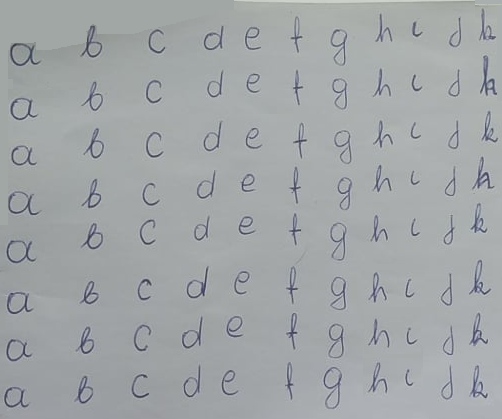 a b c d e f g h i j k
a b c d e f g h i j k
a b c d e f g h i j k
a b c d e f g h i j k
a b c d e f g h i j k
a b c d e f g h i j k
a b c d e f g h i j k
a b c d e f g h i j k